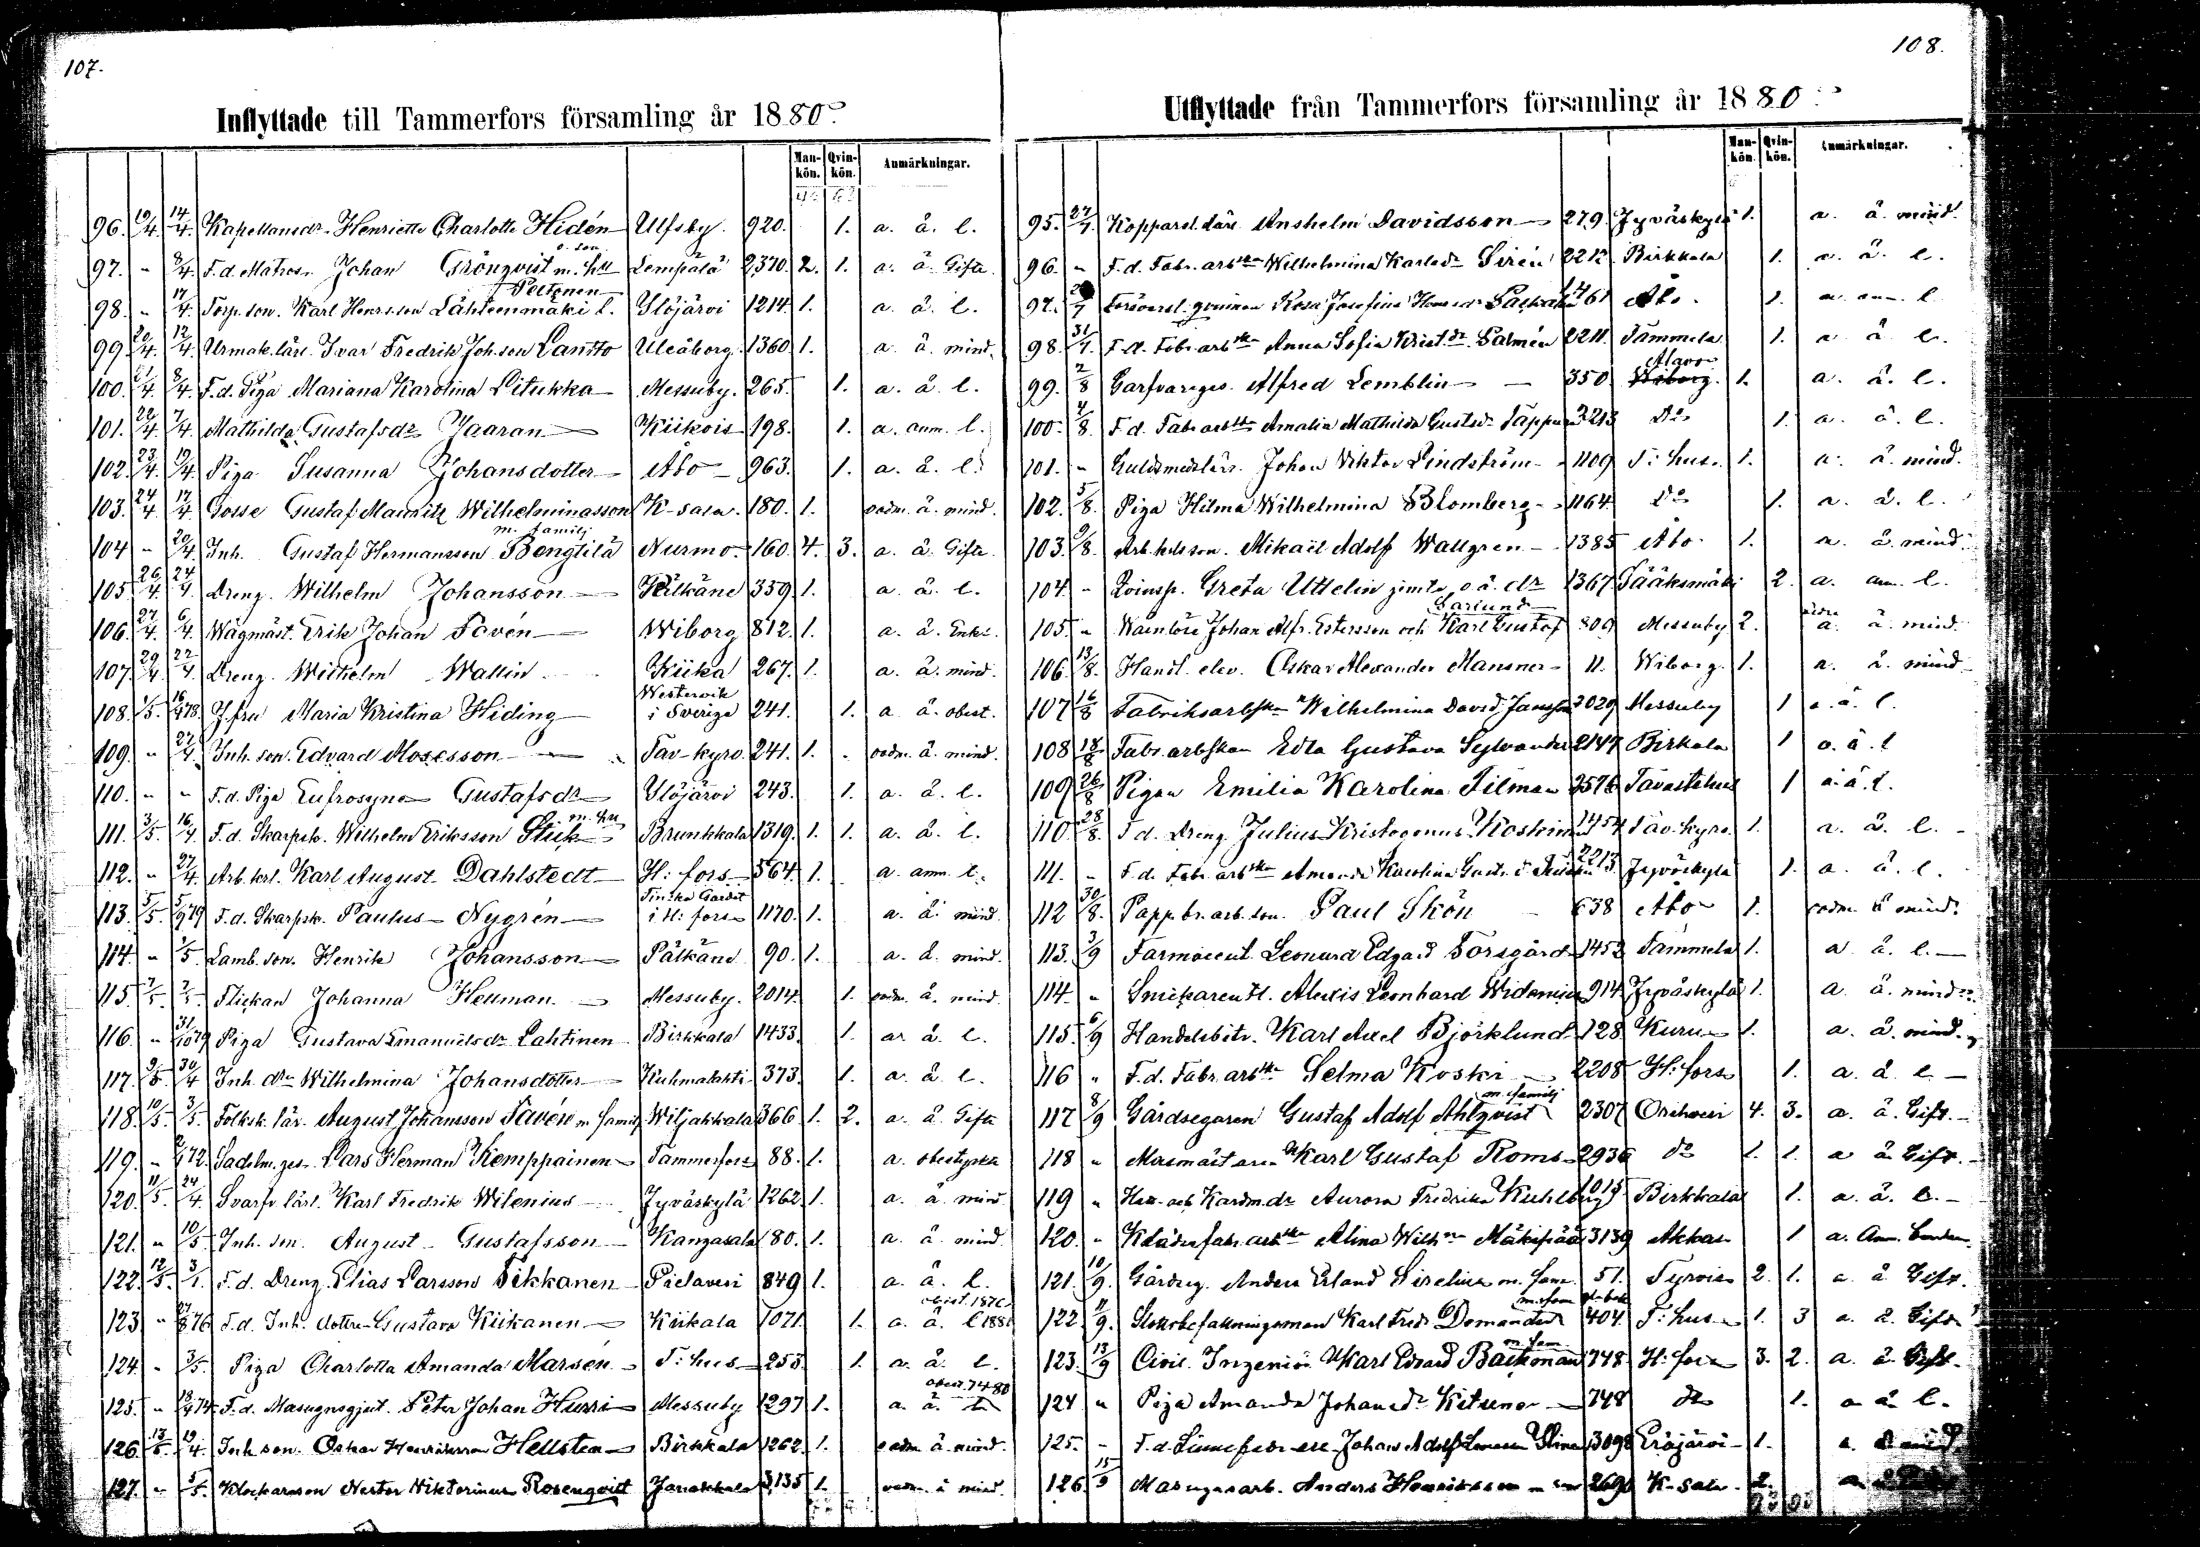 107.
Inflyttade till Tammerfors församling år 1880.
Mankön. Qvinkön. Anmärkningar.
96. 19/4. 14/4. Kapellansdr. Henriette Charlotte Hidén Ulfsby. 920. 1. a. å. l.
97. - 8/4. F.d. Matros. Johan Grönqvist m. hu o. son Lempälä 2370. 2. 1. a. å. Gifta
98. - 17/4. Torp. son. Karl Henrsson Lähteenmäki l. Peltonen Ylöjärvi 1214. 1. a. å. l.
99. 20/4. 12/4. Urmak. lärl. Ivar Fredrik Joh.son Lantto Uleåborg. 1360. 1. a. å. mind.
100. 21/4. 8/4. F.d. Piga Mariana Karolina Litukka Messuby. 265. 1. a. å. l.
101. 22/4. 7/4. Mathilda Gustafsdr Yaaran Kiikois 198. 1. a. anm. l.
102. 23/4. 19/4. Piga Susanna Johansdotter Åbo 963. 1. a. å. l.
103. 24/4. 17/4. Gosse Gustaf Mauritz Wilhelminasson K-sala. 180. 1. oadm. å. mind.
104 - 20/4. Inh. Gustaf Hermansson Bengtilä m. familj Nurmo 160. 4. 3. a. å. Gifta
105. 26/4. 24/4. Dreng. Wilhelm Johansson Pälkäne 359. 1. a. å. l.
106. 27/4. 6/4. Wågmäst. Erik Johan Pavén Wiborg 812. 1. a. å. Enkl.
107. 29/4. 22/4. Dreng. Wilhelm Wallin Kiika 267. 1. a. å. mind.
108. 1/5. 16/9 78. Jfru Maria Kristina Hiding Westervik i Sverige 241. 1. a å. obest.
109. - 27/4. Inh. son. Edvard Mosesson Tav-kyro. 241. 1. oadm. å. mind.
110. - - F.d. Piga Eufrosyne Gustafsdr Ylöjärvi 243. 1. a. å. l.
111. 3/5. 16/4 F.d. Skarpsk. Wilhelm Eriksson Stick m. hu Brunkkala 1319. 1. 1. a. å. l.
112. - 27/4. Arb. karl. Karl August Dahlstedt H:fors 564. 1. a. anm. l.
113. 5/5. 5/9 79 F.d. Skarpsk. Paulus Nygrén Finska Gardet i H:fors 1170. 1. a. å mind.
114. - 1/5. Lamb. son. Henrik Johansson Pälkäne 90. 1. a. å. mind.
115. 7/5. 7/5. Flickan Johanna Hellman Messuby. 2014. 1. oadm. å. mind
116. - 31/10 79 Piga Gustava Emanuelsdr Lahtinen Birkkala 1433. 1. a. å. l.
117. 9/5. 30/4 Inh. dr. Wilhelmina Johansdotter Kuhmalahti 373. 1. a. å l.
118. 10/5. 3/5. Folksk. lär. August Johansson Pavén m familj Wiljakkala 366 1. 2. a. å Gifta
119. - 2/9 72. Sadelm. ges. Lars Herman Kemppainen Tammerfors 88. 1. a. obestyrkt
120. 11/5. 24/4. Svarfv. lärl. Karl Fredrik Wilenius Jyväskylä 1262 1. a. å mind
121. - 10/5. Inh. son. August Gustafsson Kangasala 80. 1. a. å. mind
122. 12/5. 3/1. F.d. Dreng. Elias Larsson Tikkanen Pielavesi 849 1. a. å. l.
123 - 27/8 76 F.d. Inh. dotter Gustava Kiikanen Kiikala 1071. 1. a. å. l
124. - 3/5. Piga Charlotta Amanda Marsén T:hus 253. 1. a. å l.
125. - 18/9 74. F.d. Masugnsgjut. Peter Johan Hurri Messuby 1297 1. a. å.
126. 13/5. 19/4. Inh. son. Oskar Henriksson Hellsten Birkkala 1262. 1. oadm. å mind.
127. - 5/5. Klockarson Nestor Wiktorinus Rosenqvist Janakkala 3135 1. oadm. å mind.
108.
Utflyttade från Tammerfors församling år 1880.
Mankön. Qvinkön. Anmärkningar.
95. 27/7. Kopparsl. lärl. Anshelm Davidsson 279. Jyväskylä 1. a. å. mind.
96. - F.d. Fabr. arbskn Wilhelmina Karlsdr Sirén 2212. Birkkala 1. a. å. l.
97. Rosa Josefina Åbo. 1. a. anm. l
98. 31/7. F.d. Fabr. arbskn Anna Sofia Krist.dr Salmén 2211. Tammela 1. a å l.
99. 2/8 Garfvareges. Alfred Lemblin 350 Alavo 1. a. å. l.
100. 4/8. F.d. Fabr. arbskn Amalia Mathilda Gustsdr 3213 Do 1. a. å. l.
101. - Guldsmedslärl. Johan Viktor Lindström 1109 T:hus. 1. a. å. mind.
102. 5/8. Piga Hilma Wilhelmina Blomberg 1164 Do 1. a. å. l.
103. 9/8. Arb. karls son. Mikael Adolf Wallgren 1385 Åbo 1. a. å. mind.
104. - Qvinsp. Greta Uttelin jemte o.ä. dr 1367 Sääksmäki 2. a. anm. l.
105. - Johan Alfr. Estersson och Karl Gustaf 809 Messuby 2. a. å. mind.
106. 13/8. Handl. elev. Oskar Alexander Mansner 11. Wiborg. 1. a. å. mind
107 16/8 Fabriksarbskn Wilhelmina David Jansson 2029 Messuby 1 a. å. l.
108 18/8 Fabr. arbskan Edla Gustava Sylvander 2147 Birkala 1 a. å. l
109 26/8 Pigan Emilia Karolina Tilman 2576 Tavastehus 1 a. å. l.
110. 28/8. F.d. Dreng Julius Kristogonus Koskinen 1454 Tav-kyro 1. a. å. l.
111. - F.d. Fabr. arbskn Amanda Karolina 2213 Jyväskylä 1. a. å. l.
112 30/8. Papp. br. arb. son. Paul Skön 638 Åbo 1. oadm. å mind.
113. 3/9 Farmaceut. Leonard Edgard Forsgård 1452 Tammela 1. a å. l.
114. - Snickaren H. Alexis Leonhard Widenius 914 Jyväskylä 1. a. å. mind.
115. 6/9 Handelsbitr. Karl Axel Björklund 128 Kuru 1. a. å mind.
116 - F.d. Fabr. arbskn Selma Koski 2208 H:fors 1. a. å l
117 8/9 Gårdsegaren Gustaf Adolf Ahlqvist m. familj 2307 Orihvesi 4. 3. a. å. Gift.
118 - Karl Gustaf Roms 2936 do 1. 1. a å Gift.
119 - Aurora Fredrika Kuhlberg 1015 Birkkala 1. a. å. l.
120. - Klädesfabr. arbskn Alina Wilh. Mäkipää 3139 Akkas 1 a. Anm.
121. 10/9. Gårdseg. Anders Erland Sirelius m. fam. 51. Tyrvis 2. 1. a å Gift.
122. 11/9. Karl Fredr. Domander m. fam 404. T:hus 1. 3 a. å. Gift
123. 13/9 Civil. Ingeniör Karl Edvard Backman m. fam 748 H:fors 3. 2. a. å Gift.
124 - Piga Amanda Johansdr Kitunen 748 do 1. a å l.
125. - Johan Adolf 3098 Eräjärvi 1. a.
126. 15/9 Masugnsarb. Anders Henriksson m son 2690 K-sala. 2. a